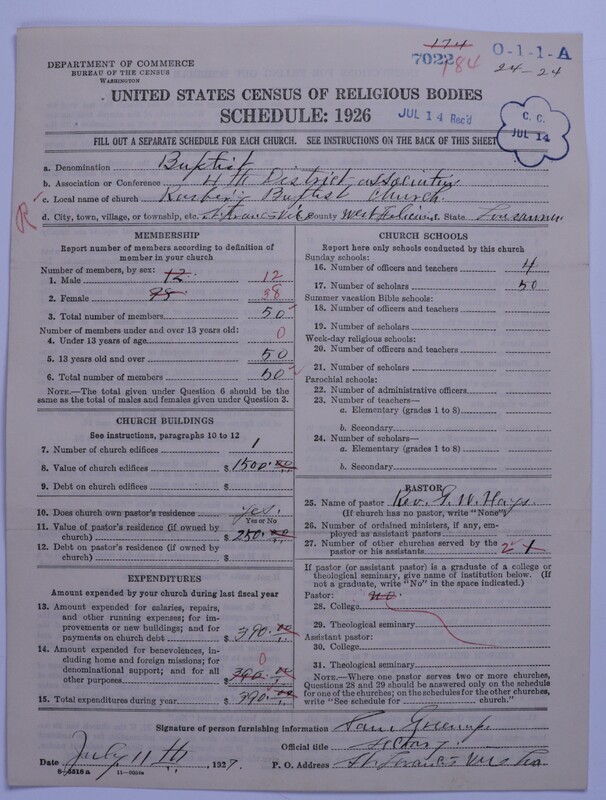 174
7022
184
O-1-1-A
24-24
DEPARTMENT OF COMMERCE
BUREAU OF THE CENSUS
WASHINGTON
UNITED STATES CENSUS OF RELIGIOUS BODIES
SCHEDULE: 1926
JUL 14 Rec'd
C. C.
JUL 14
FILL OUT A SEPARATE SCHEDULE FOR EACH CHURCH. SEE INSTRUCTIONS ON THE BACK OF THIS SHEET
a. Denomination Baptist
b. Association or Conference 4th District association
c. Local name of church Baptist Church
R
d. City, town, village, or township, etc. St. Francisville County West Feliciana State Louisiana
MEMBERSHIP
Report number of members according to definition of
member in your church
Number of members, by sex:
1. Male 12 12
2. Female 38
3. Total number of members 50
Number of members under and over 13 years old:
4. Under 13 years of age 0
5. 13 years old and over 50
6. Total number of members 50
NOTE.—The total given under Question 6 should be the
same as the total of males and females given under Question 3.
CHURCH BUILDINGS
See instructions, paragraphs 10 to 12
7. Number of church edifices 1
8. Value of church edifices $1500.00
9. Debt on church edifices $
10. Does church own pastor's residence yes.
Yes or No
11. Value of pastor's residence (if owned by
church) $250.00
12. Debt on pastor's residence (if owned by
church) $
EXPENDITURES
Amount expended by your church during last fiscal year
13. Amount expended for salaries, repairs,
and other running expenses; for im-
provements or new buildings; and for
payments on church debt $390.00
14. Amount expended for benevolences,
including home and foreign missions; for
denominational support; and for all
other purposes 0 $
15. Total expenditures during year $390.00
CHURCH SCHOOLS
Report here only schools conducted by this church
Sunday schools:
16. Number of officers and teachers 4
17. Number of scholars 50
Summer vacation Bible schools:
18. Number of officers and teachers
19. Number of scholars
Week-day religious schools:
20. Number of officers and teachers
21. Number of scholars
Parochial schools:
22. Number of administrative officers
23. Number of teachers—
a. Elementary (grades 1 to 8)
b. Secondary
24. Number of scholars—
a. Elementary (grades 1 to 8)
b. Secondary
PASTOR
25. Name of pastor Rev. G. W. Hays
(If church has no pastor, write "None")
26. Number of ordained ministers, if any, em-
ployed as assistant pastors
27. Number of other churches served by the
pastor or his assistants 2 1
If pastor (or assistant pastor) is a graduate of a college or
theological seminary, give name of institution below. (If
not a graduate, write "No" in the space indicated.)
Pastor: no
28. College
29. Theological seminary
Assistant pastor:
30. College
31. Theological seminary
NOTE.—Where one pastor serves two or more churches,
Questions 28 and 29 should be answered only on the schedule
for one of the churches; on the schedules for the other churches,
write "See schedule for church."
Signature of person furnishing information Sam
Official title
Date July 11th, 1927. P. O. Address St.
8-5518a 11-9504a